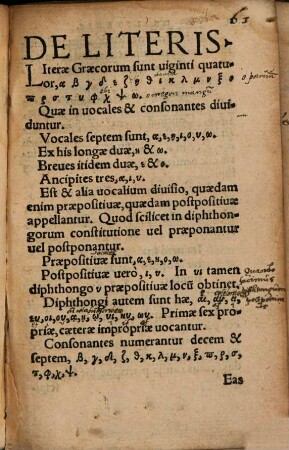 DE LITERIS.
Literæ Græcorum sunt uiginti quatu-
or, α β γ δ ε ζ η θ ι κ λ μ ν ξ ο
π ρ σ τ υ φ χ ψ ω.
Quæ in uocales & consonantes diui-
duntur.
Vocales septem sunt, α, ε, η, ι, ο, υ, ω.
Ex his longæ duæ, η & ω.
Breues itidem duæ, ε & ο.
Ancipites tres, α, ι, υ.
Est & alia uocalium diuisio, quædam
enim præpositiuæ, quædam postpositiuæ
appellantur. Quod scilicet in diphthon-
gorum constitutione uel præponantur
uel postponantur.
Præpositiuæ sunt, α, ε, η, ο, ω.
Postpositiuæ uerò, ι, υ. In υι tamen
diphthongo υ præpositiuæ locũ obtinet.
Diphthongi autem sunt hæ, αι, αυ, ει,
ευ, οι, ου, ᾳ, ῃ, ῳ, υι, ηυ, ωυ. Primæ sex pro-
priæ, cæteræ impropriæ uocantur.
Consonantes numerantur decem &
septem, β, γ, δ, ζ, θ, κ, λ, μ, ν, ξ, π, ρ, σ,
τ, φ, χ, ψ.
Eas